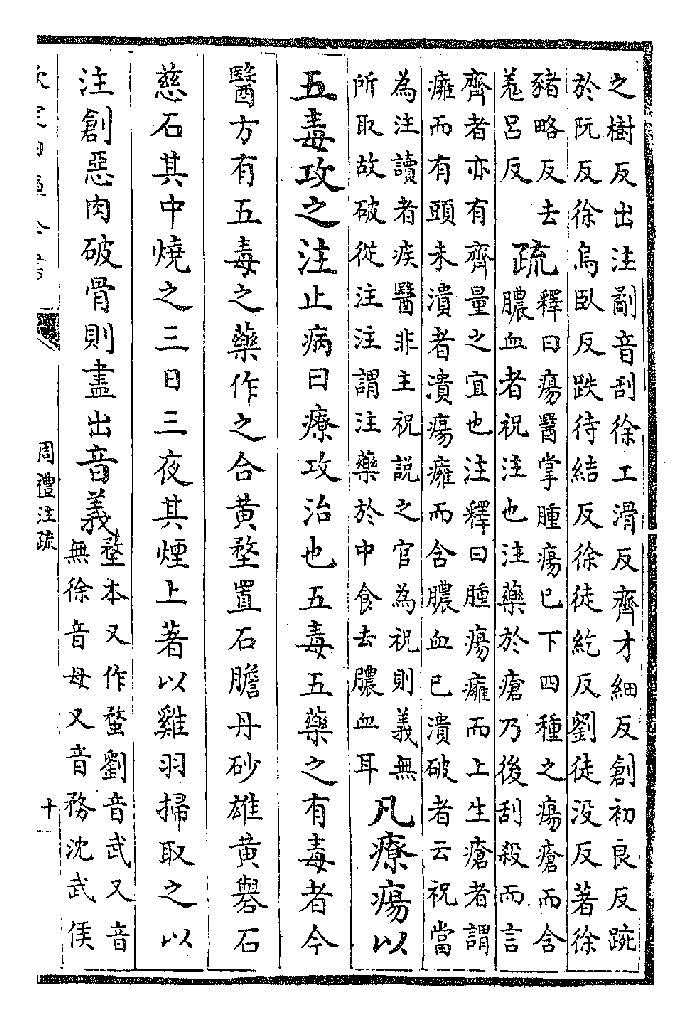 之樹反出注劀音刮徐工滑反齊才細反創初良反踠
於阮反徐烏臥反跌待結反徐徒紇反劉徒没反著徐
豬略反去
羗呂反
疏
釋曰瘍醫掌腫瘍已下四種之瘍瘡而含
膿血者祝注也注藥於瘡乃後刮殺而言
齊者亦有齊量之宜也注釋曰腫瘍癰而上生瘡者謂
癰而有頭未潰者潰瘍癰而含膿血已潰破者云祝當
為注讀者疾醫非主祝說之官為祝則義無
所取故破從注注謂注藥於中食去膿血耳
凡療瘍以
五毒攻之注止病曰療攻治也五毒五藥之有毒者今
醫方有五毒之藥作之合黄堥置石膽丹砂雄黄礜石
慈石其中燒之三日三夜其煙上著以雞羽掃取之以
注創惡肉破骨則盡出音義
堥本又作蝥劉音武又音
無徐音母又音務沈武侯
周禮注疏
十